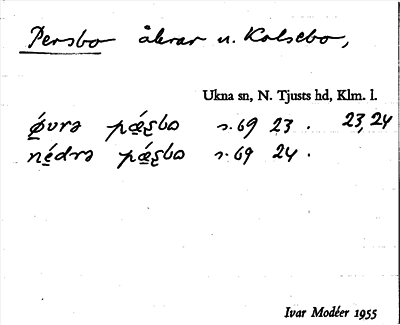 Persbo åkrar u. Kalsebo,
Ukna sn, N. Tjusts hd, Klm. l.
ǿvrə pǽʂbo s. 69 23. 23,24
nédrə pǽʂbo s. 69 24.
Ivar Modéer 1955